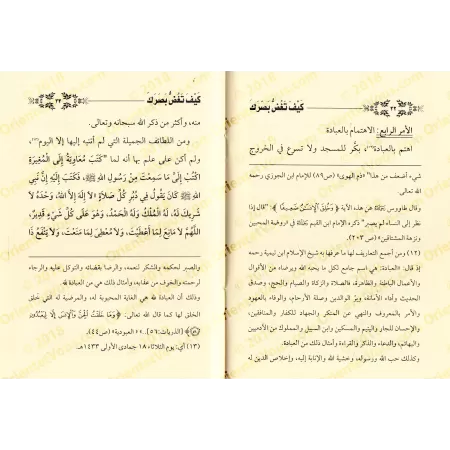 كَيْفَ تَغُضُّ بَصَرَكَ
٢٢
الأمر الرابع: الاهتمام بالعبادة
اهتم بالعبادة(١٢)، بكّر للمسجد ولا تسرع في الخروج
شيء أضعف من هذا" «ذم الهوى» (ص٨٩) للإمام ابن الجوزي رحمه
الله.
قال طاووس ﵀ عن هذه الآية ﴿وَخُلِقَ الْإِنسَانُ ضَعِيفًا﴾ "قال إذا
نظر إلى النساء لم يصبر" ذكره الإمام ابن القيم ﵀ في «روضة المحبين
ونزهة المشتاقين» (ص٢٠٣).
(١٢) ومن أجمع التعاريف لها ما عرفها به شيخ الإسلام ابن تيمية رحمه
الله إذ قال: «العبادة: هي اسم جامع لكل ما يحبه الله ويرضاه من الأقوال
والأعمال الباطنة والظاهرة، فالصلاة والزكاة والصيام والحج، وصدق
الحديث وأداء الأمانة، وبرّ الوالدين وصلة الأرحام، والوفاء بالعهود
والأمر بالمعروف والنهي عن المنكر والجهاد للكفار والمنافقين،
والإحسان للجار واليتيم والمسكين وابن السبيل والمملوك من الآدميين
والبهائم، والدعاء والذكر والقراءة وأمثال ذلك من العبادة.
وكذلك حب الله ورسوله، وخشية الله والإنابة إليه، وإخلاص الدين له
كَيْفَ تَغُضُّ بَصَرَكَ
منه، وأكثر من ذكر الله سبحانه وتعالى.
ومن اللطائف الجميلة التي لم أنتبه إليها إلا اليوم(١٣)،
ولم أكن على علم بها أنه لما "كَتَبَ مُعَاوِيَةُ إِلَى الْمُغِيرَةِ
اكْتُبْ إِلَيَّ مَا سَمِعْتَ مِنْ رَسُولِ اللهِ ﷺ، فَكَتَبَ إِلَيْهِ إِنَّ نَبِيَّ
اللهِ ﷺ كَانَ يَقُولُ فِي دُبُرِ كُلِّ صَلَاةٍ «لَا إِلَهَ إِلَّا اللهُ، وَحْدَهُ لَا
شَرِيكَ لَهُ، لَهُ الْمُلْكُ وَلَهُ الْحَمْدُ، وَهُوَ عَلَى كُلِّ شَيْءٍ قَدِيرٌ،
اللَّهُمَّ لَا مَانِعَ لِمَا أَعْطَيْتَ، وَلَا مُعْطِيَ لِمَا مَنَعْتَ، وَلَا يَنْفَعُ ذَا
والصبر لحكمه والشكر لنعمه، والرضا بقضائه والتوكل عليه والرجاء
لرحمته والخوف من عذابه، وأمثال ذلك هي من العبادة لله.
وذلك أن العبادة لله هي الغاية المحبوبة له، والمرضية له التي خلق
الخلق لها كما قال الله تعالى: ﴿وَمَا خَلَقْتُ الْجِنَّ وَالْإِنسَ إِلَّا لِيَعْبُدُونِ
﴾ [الذاريات: ٥٦].» «العبودية» (ص٤٤).
(١٣) أي: يوم الثلاثاء ١٨ جمادى الأولى ١٤٣٣هـ.